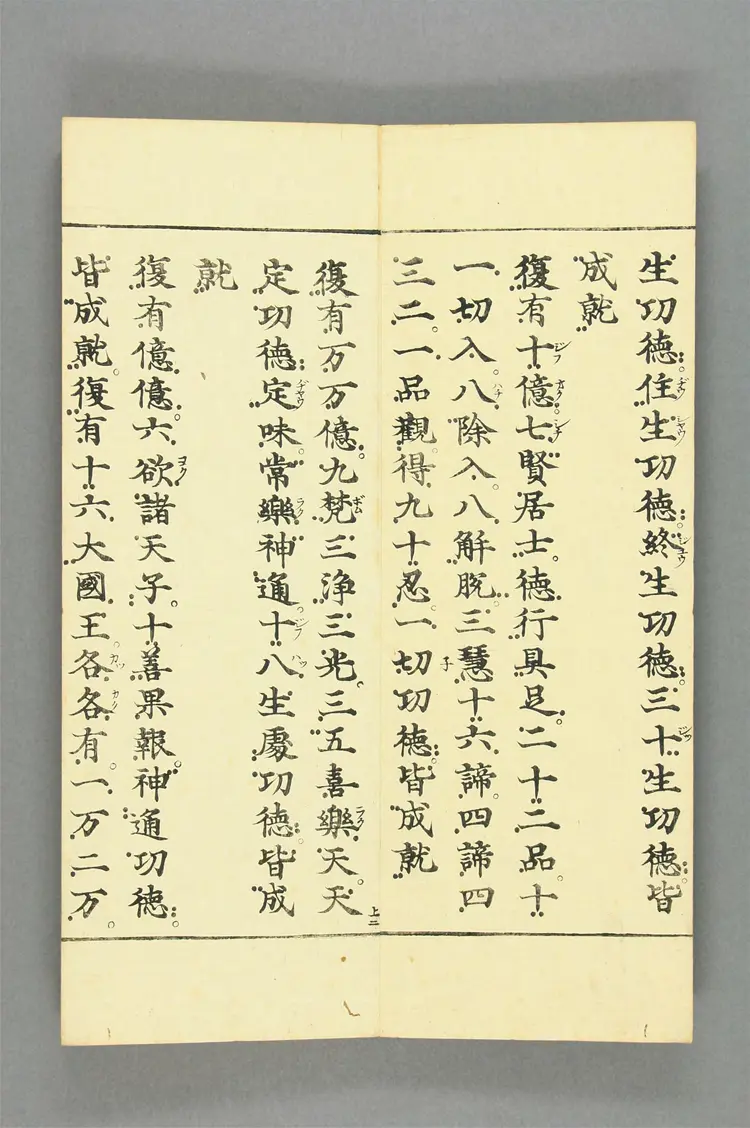 生功徳住生功徳終生功徳三十生功徳皆
成就
復有十億七賢居士徳行具足二十二品十
一切入八除入八解脱三慧十六諦四諦四
三二一品觀得九十忍一切功徳皆成就
復有万万億九梵三浄三光三五喜樂天天
定功徳定味常樂神通十八生處功徳皆成
就
復有億億六欲諸天子十善果報神通功徳
皆成就復有十六大國王各各有一万二万
上二